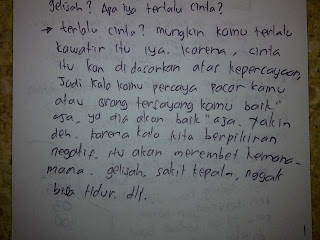 gelisah? Apa iya terlalu cinta?
→ terlalu cinta? mungkin kamu terlalu
kawatir itu iya. karena, cinta
itu kan di dasarkan atas kepercayaan,
Jadi kalo kamu percaya pacar kamu
atau orang tersayang kamu baik"
aja, ya dia akan baik" aja. Yakin
deh. karena kalo kita berpikiran
negatif. itu akan merembet kemana-
mana. gelisah, sakit kepala, nggak
bisa tidur. dll.